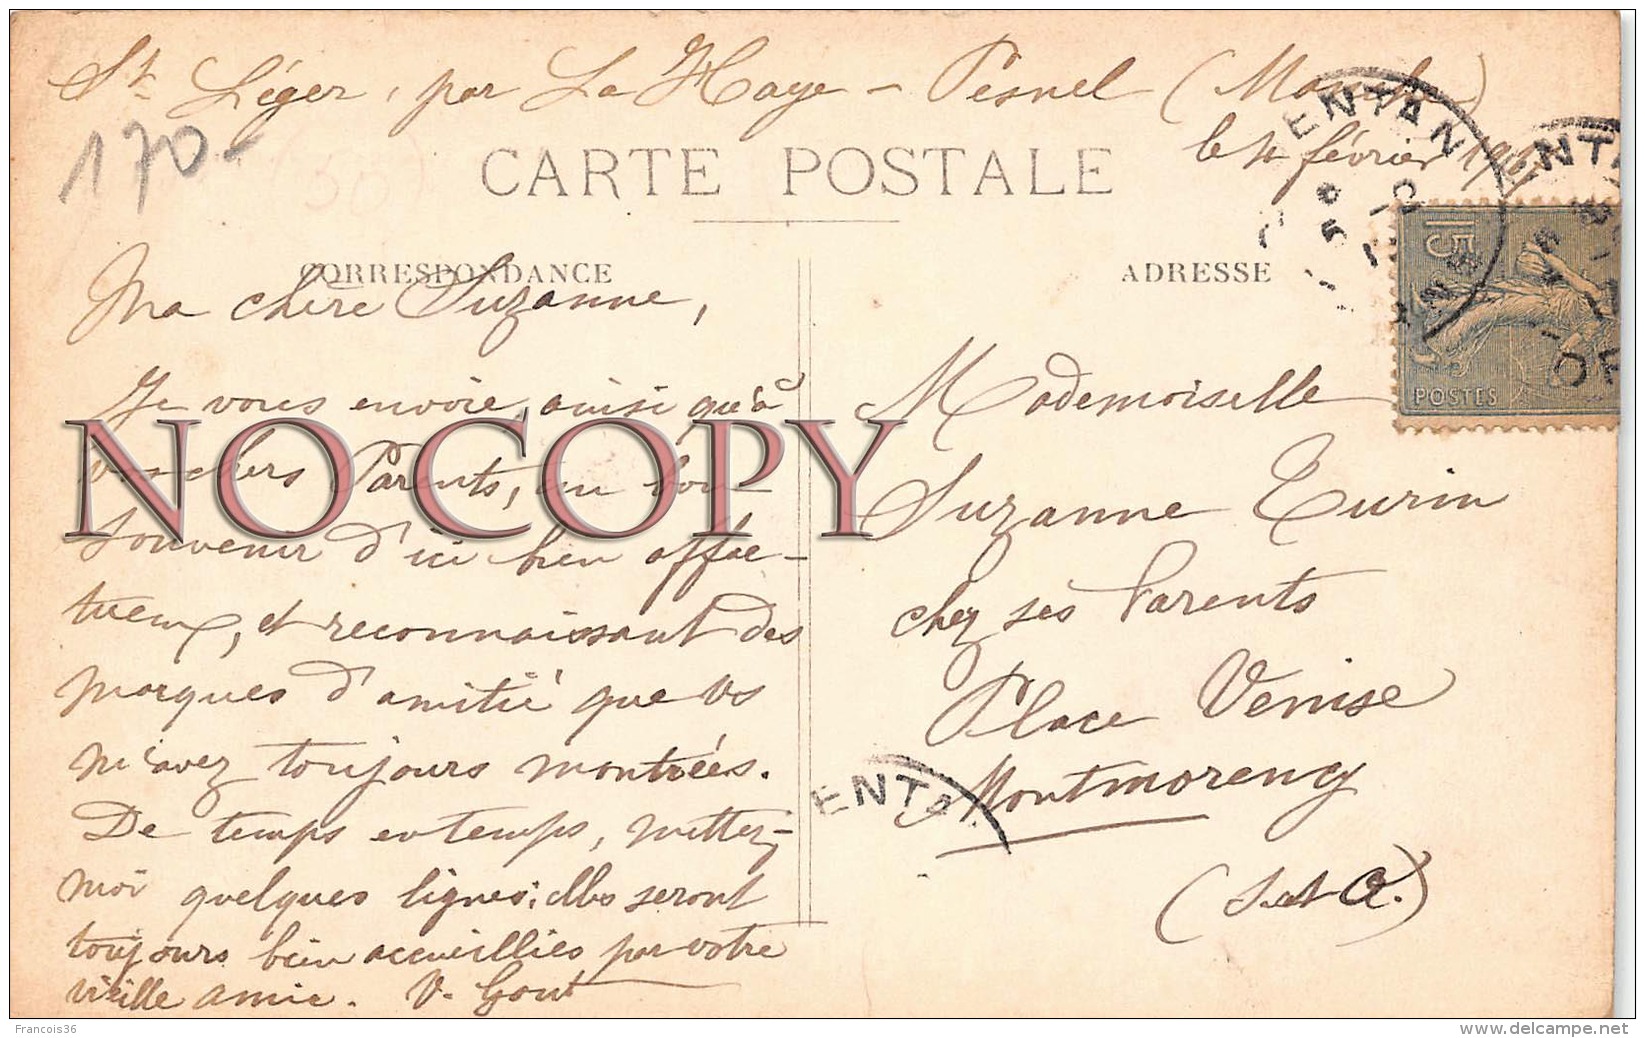 St Léger, par La Haye-Pesnel (Manche)
le 11 février 1907
170-
CARTE POSTALE
CORRESPONDANCE
ADRESSE
Ma chère Suzanne,
Je vous envoie, ainsi qu'à
vos chers Parents, un bon
souvenir d'ici bien affec-
tueux, et reconnaissant des
marques d'amitié que vs
m'avez toujours montrées.
De temps en temps, mettez-
moi quelques lignes; elles seront
toujours bien accueillies par votre
vieille amie. V. Gout
Mademoiselle
Suzanne Turin
chez ses Parents
Place Venise
Montmorency
(S. et O.)
15
POSTES
ENTAN
ENTA
NO COPY
Francois36
www.delcampe.net